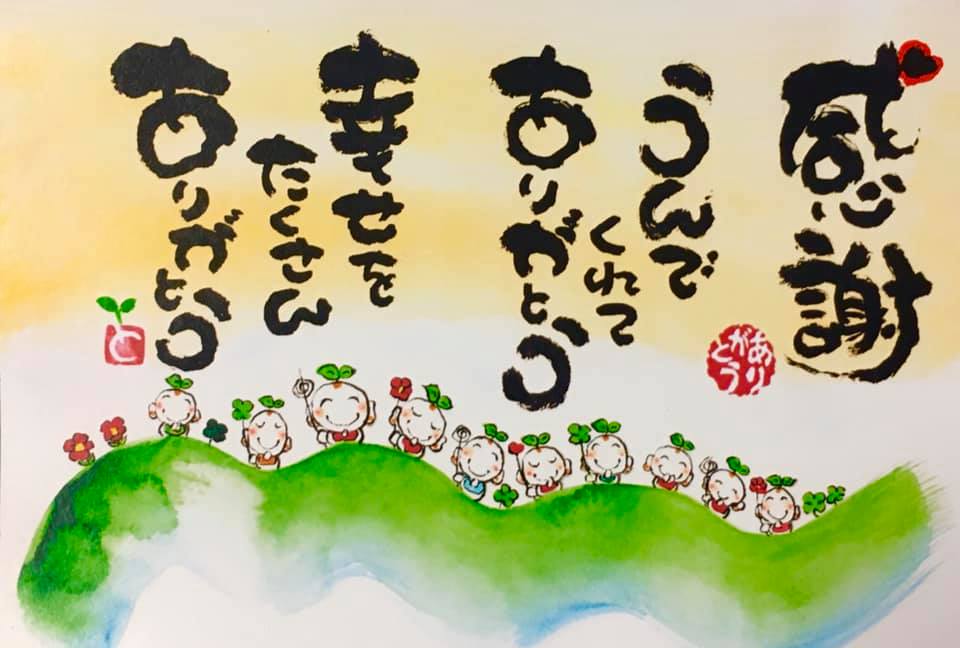 感謝
ありがとう
うんで
くれて
ありがとう
幸せを
たくさん
ありがとう
と